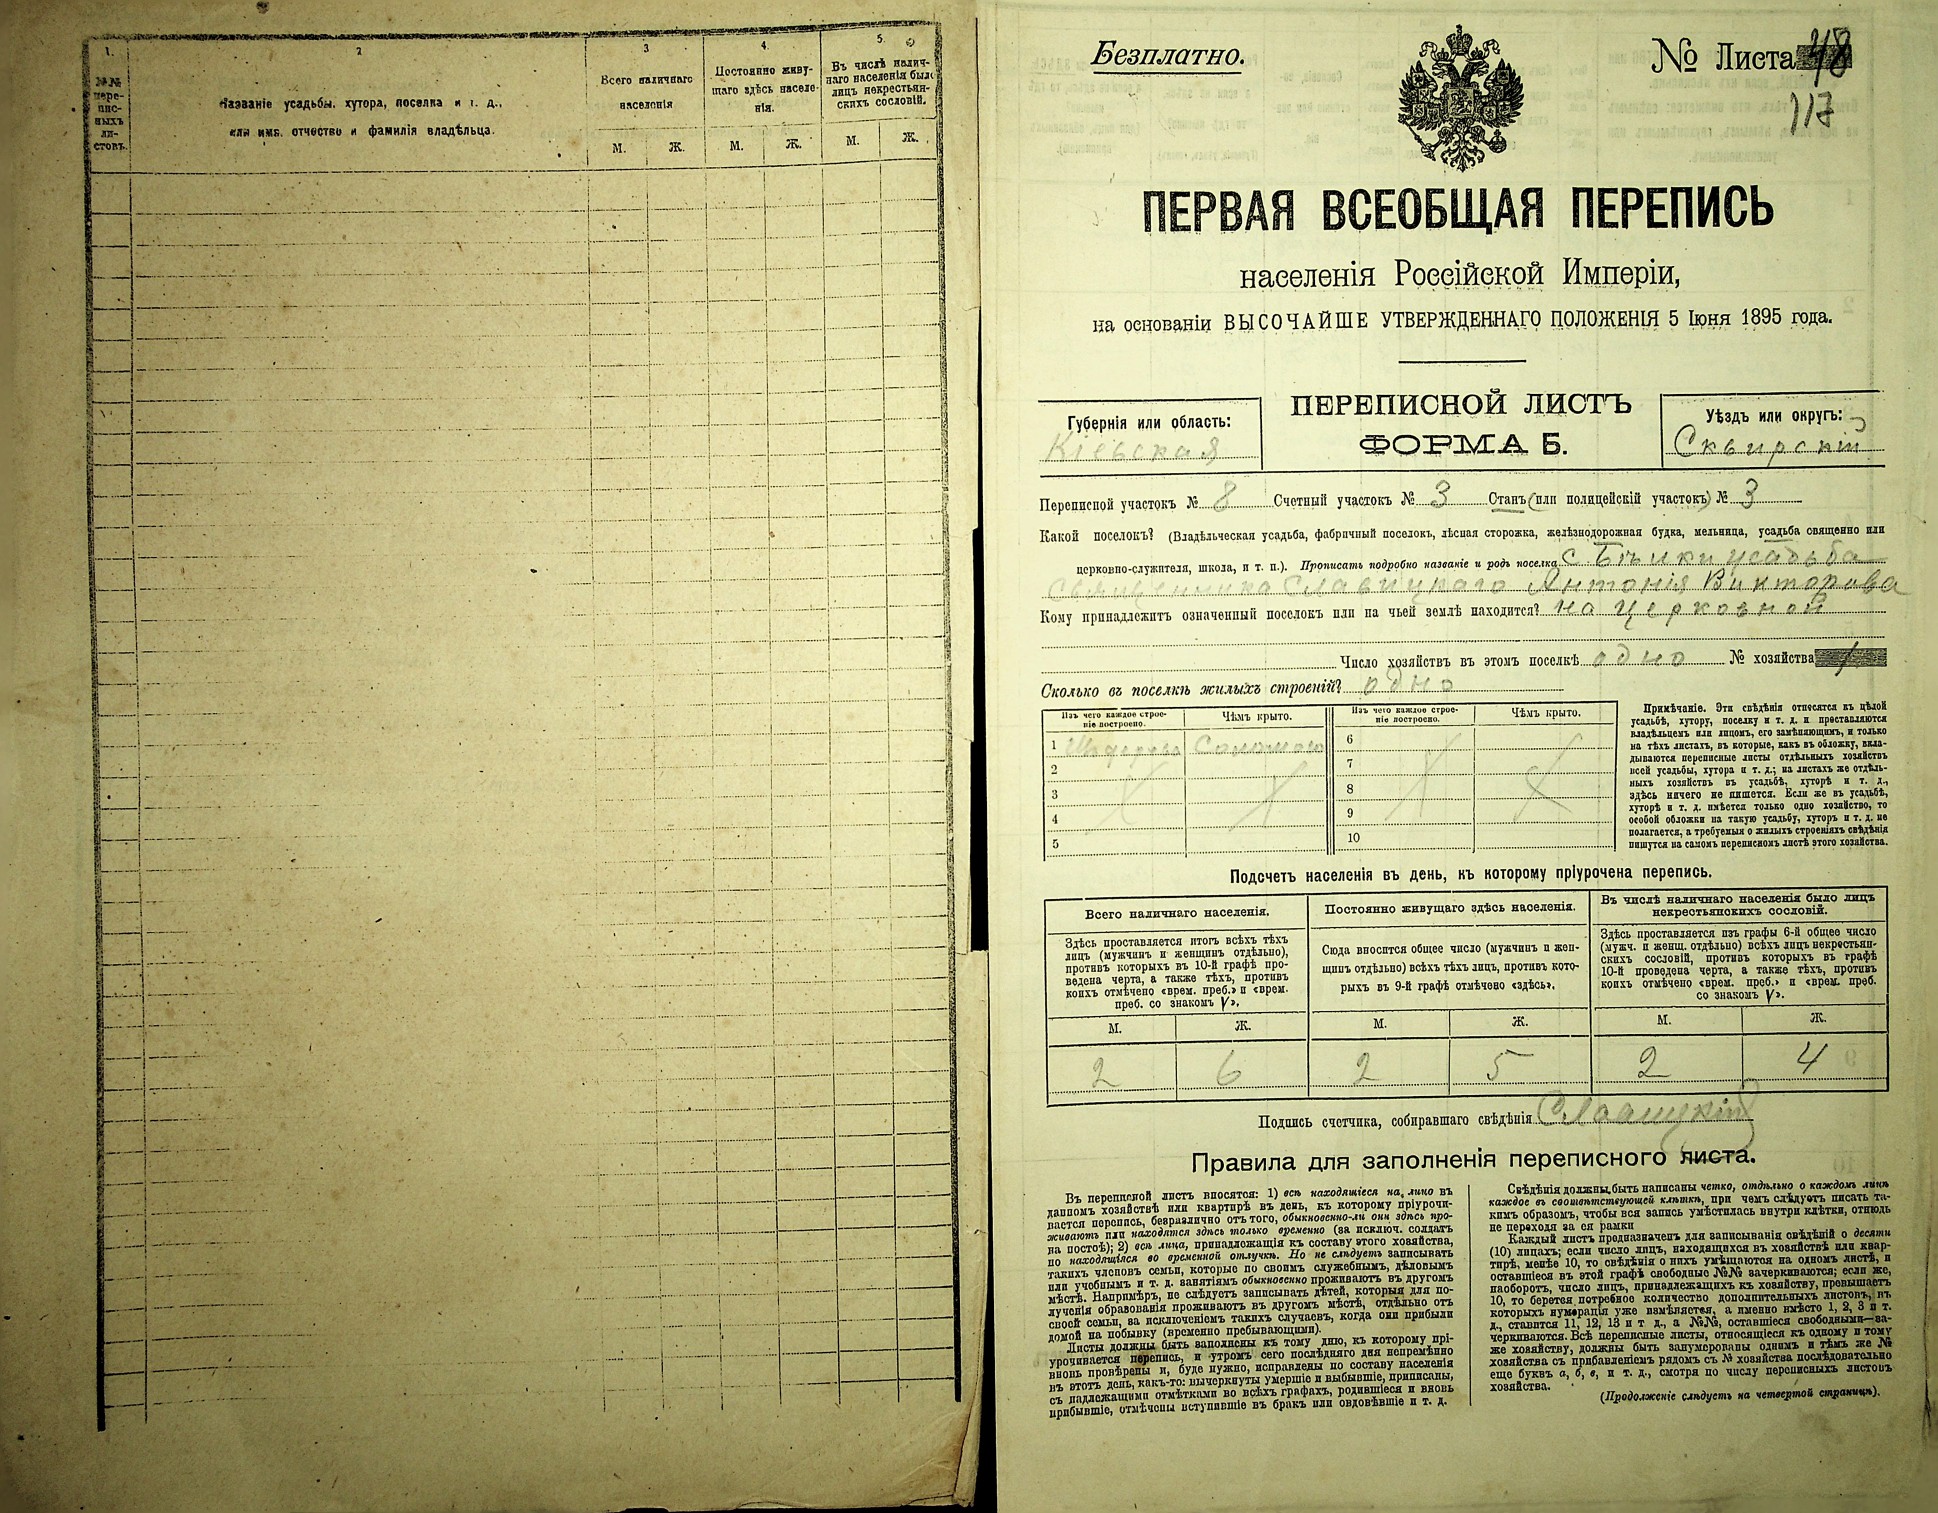 1.
2
3
4.
5.
№№ пере-
пис-
ныхъ
ли-
стовъ.
Названіе усадьбы, хутора, поселка и т. д.,
или имя, отчество и фамилія владѣльца.
Всего наличнаго
населенія
Постоянно живу-
щаго здѣсь населе-
нія.
Въ числѣ налич-
наго населенія было
лицъ некрестьян-
скихъ сословій.
М. Ж. М. Ж. М. Ж.
Безплатно.
№ Листа 48
117
ПЕРВАЯ ВСЕОБЩАЯ ПЕРЕПИСЬ
населенія Россійской Имперіи,
на основаніи ВЫСОЧАЙШЕ УТВЕРЖДЕННАГО ПОЛОЖЕНІЯ 5 Іюня 1895 года.
Губернія или область:
Кіевская
ПЕРЕПИСНОЙ ЛИСТЪ
ФОРМА Б.
Уѣздъ или округъ:
Сквирскій
Переписной участокъ № 8 Счетный участокъ № 3 Станъ (или полицейскій участокъ) № 3
Какой поселокъ? (Владѣльческая усадьба, фабричный поселокъ, лѣсная сторожка, желѣзнодорожная будка, мельница, усадьба священно или
церковно-служителя, школа, и т. п.). Прописать подробно названіе и родъ поселка с. Бѣлки усадьба
священника Славицкаго Антонія Викторова
Кому принадлежитъ означенный поселокъ или на чьей землѣ находится? на церковной
Число хозяйствъ въ этомъ поселкѣ одно № хозяйства 1
Сколько въ поселкѣ жилыхъ строеній? одно
Изъ чего каждое строе-
ніе построено.
Чѣмъ крыто.
Изъ чего каждое строе-
ніе построено.
Чѣмъ крыто.
1 Соломою 6
2 7
3 8
4 9
5 10
Примѣчаніе. Эти свѣдѣнія относятся къ цѣлой
усадьбѣ, хутору, поселку и т. д. и проставляются
владѣльцемъ или лицомъ, его замѣняющимъ, и только
на тѣхъ листахъ, въ которые, какъ въ обложку, вкла-
дываются переписные листы отдѣльныхъ хозяйствъ
всей усадьбы, хутора и т. д.; на листахъ же отдѣль-
ныхъ хозяйствъ въ усадьбѣ, хуторѣ и т. д.,
здѣсь ничего не пишется. Если же въ усадьбѣ,
хуторѣ и т. д. имѣется только одно хозяйство, то
особой обложки на такую усадьбу, хуторъ и т. д. не
полагается, а требуемыя о жилыхъ строеніяхъ свѣдѣнія
пишутся на самомъ переписномъ листѣ этого хозяйства.
Подсчетъ населенія въ день, къ которому пріурочена перепись.
Всего наличнаго населенія.
Здѣсь проставляется итогъ всѣхъ тѣхъ
лицъ (мужчинъ и женщинъ отдѣльно),
противъ которыхъ въ 10-й графѣ про-
ведена черта, а также тѣхъ, противъ
коихъ отмѣчено «врем. преб.» и «врем.
преб. со знакомъ V».
Постоянно живущаго здѣсь населенія.
Сюда вносится общее число (мужчинъ и жен-
щинъ отдѣльно) всѣхъ тѣхъ лицъ, противъ кото-
рыхъ въ 9-й графѣ отмѣчено «здѣсь».
Въ числѣ наличнаго населенія было лицъ
некрестьянскихъ сословій.
Здѣсь проставляется изъ графы 6-й общее число
(мужч. и женщ. отдѣльно) всѣхъ лицъ некрестьян-
скихъ сословій, противъ которыхъ въ графѣ
10-й проведена черта, а также тѣхъ, противъ
коихъ отмѣчено «врем. преб.» и «врем. преб.
со знакомъ V».
М. Ж. М. Ж. М. Ж.
2 6 2 5 2 4
Подпись счетчика, собиравшаго свѣдѣнія
Правила для заполненія переписного листа.
Въ переписной листъ вносятся: 1) всѣ находящіеся на лицо въ
данномъ хозяйствѣ или квартирѣ въ день, къ которому пріурочи-
вается перепись, безразлично отъ того, обыкновенно-ли они здѣсь про-
живаютъ или находятся здѣсь только временно (за исключ. солдатъ
на постоѣ); 2) всѣ лица, принадлежащія къ составу этого хозяйства,
но находящіяся во временной отлучкѣ. Но не слѣдуетъ записывать
такихъ членовъ семьи, которые по своимъ служебнымъ, дѣловымъ
или учебнымъ и т. д. занятіямъ обыкновенно проживаютъ въ другомъ
мѣстѣ. Напримѣръ, не слѣдуетъ записывать дѣтей, которыя для по-
лученія образованія проживаютъ въ другомъ мѣстѣ, отдѣльно отъ
своей семьи, за исключеніемъ такихъ случаевъ, когда они прибыли
домой на побывку (временно пребывающими).
Листы должны быть заполнены къ тому дню, къ которому прі-
урочивается перепись, и утромъ сего послѣдняго дня непремѣнно
вновь провѣрены и, буде нужно, исправлены по составу населенія
въ этотъ день, какъ-то: вычеркнуты умершіе и выбывшіе, приписаны,
съ надлежащими отмѣтками во всѣхъ графахъ, родившіеся и вновь
прибывшіе, отмѣчены вступившіе въ бракъ или овдовѣвшіе и т. д.
Свѣдѣнія должны быть написаны четко, отдѣльно о каждомъ лицѣ
каждое въ соотвѣтствующей клѣткѣ, при чемъ слѣдуетъ писать та-
кимъ образомъ, чтобы вся запись умѣстилась внутри клѣтки, отнюдь
не переходя за ея рамки
Каждый листъ предназначенъ для записыванія свѣдѣній о десяти
(10) лицахъ; если число лицъ, находящихся въ хозяйствѣ или квар-
тирѣ, менѣе 10, то свѣдѣнія о нихъ умѣщаются на одномъ листѣ, и
оставшіеся въ этой графѣ свободные №№ зачеркиваются; если же,
наоборотъ, число лицъ, принадлежащихъ къ хозяйству, превышаетъ
10, то берется потребное количество дополнительныхъ листовъ, въ
которыхъ нумерація уже измѣняется, а именно вмѣсто 1, 2, 3 и т.
д., ставится 11, 12, 13 и т д., а №№, оставшіеся свободными—за-
черкиваются. Всѣ переписные листы, относящіеся къ одному и тому
же хозяйству, должны быть занумерованы однимъ и тѣмъ же №
хозяйства съ прибавленіемъ рядомъ съ № хозяйства послѣдовательно
еще буквъ а, б, в, и т. д., смотря по числу переписныхъ листовъ
хозяйства.
(Продолженіе слѣдуетъ на четвертой страницѣ).